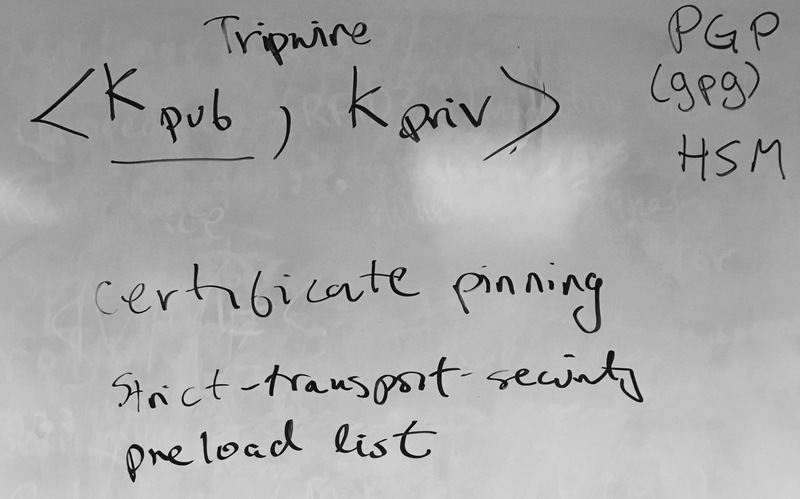 Tripwire
<Kpub, kpriv>
PGP
(gpg)
HSM
certificate pinning
Strict-transport-security
preload list